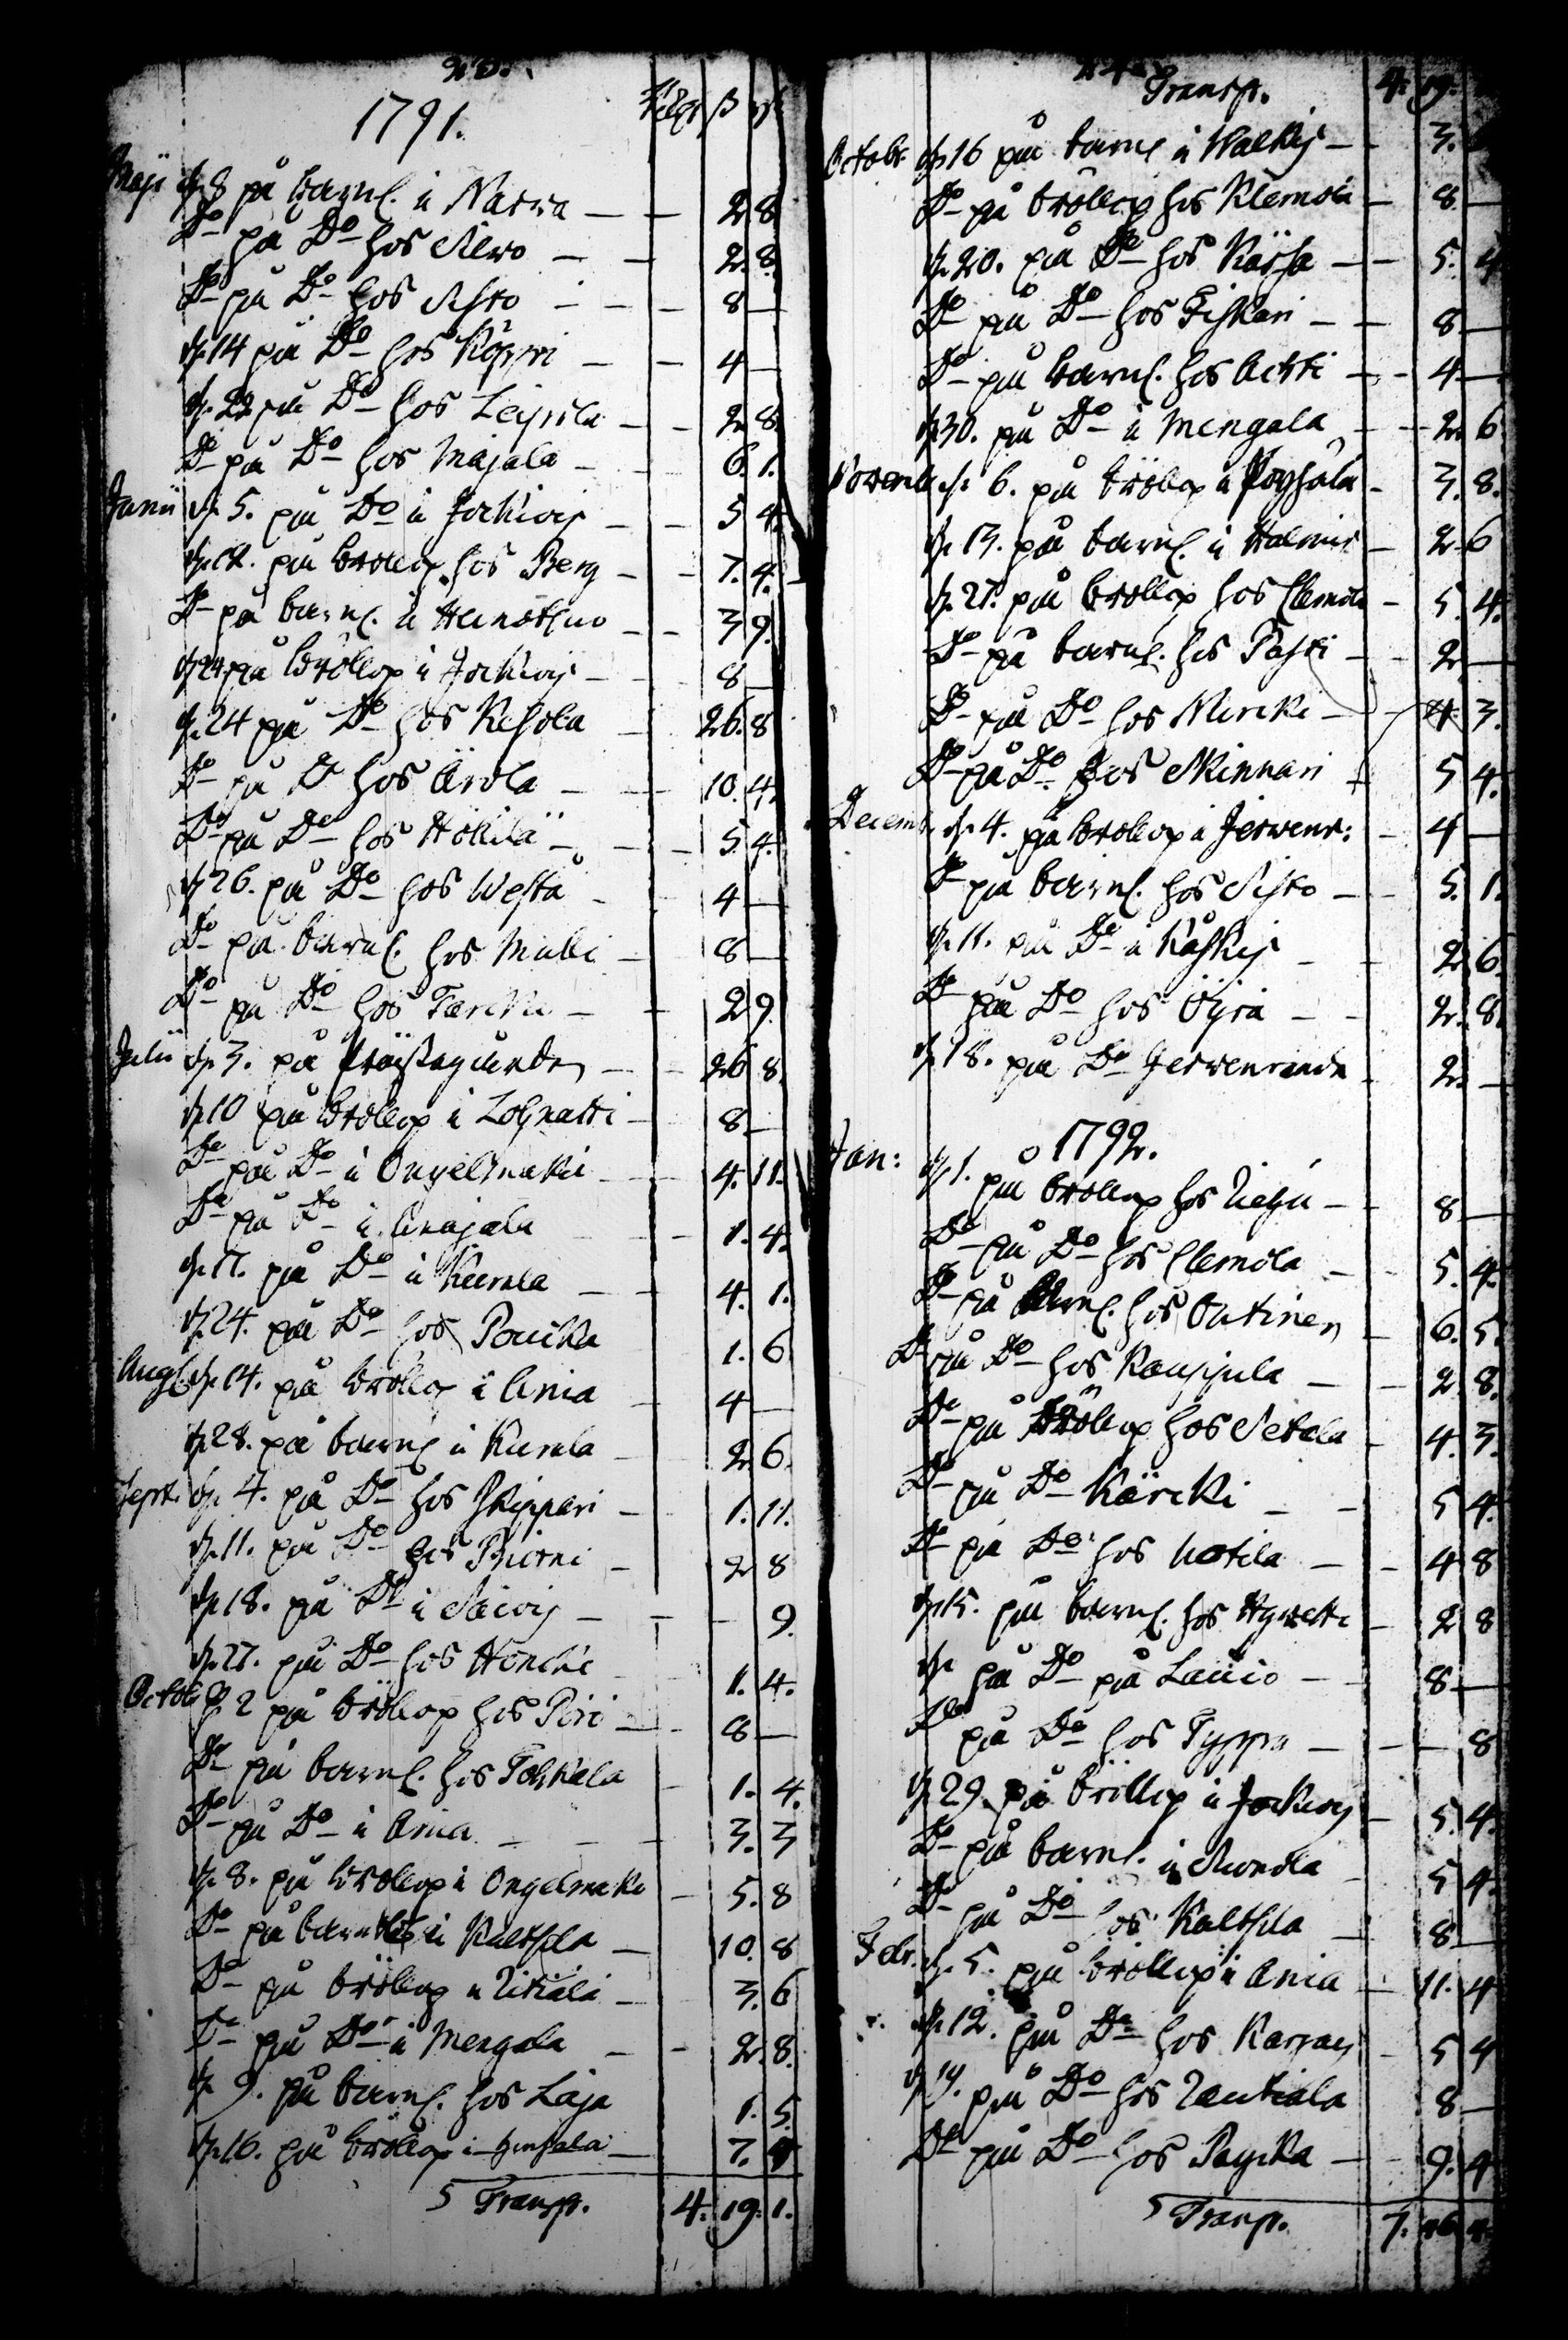 1791.
Rdr ß rst
Maji d. 8 på barnl. i Narva — — 2 8
Do på Do hos Silvo — — 2. 8.
Do på Do hos Sisto — — 8 —
d. 14 på Do hos Köppi — — 4 —
d. 22 på Do hos Leipila — — 2 8.
Do på Do hos Majala — — 6. 1.
Junii d. 5. på Do i Jockiois — — 5 4.
d. 12. på bröllop hos Berg — — 7. 4.
Do på barnl. i — — 3 9.
d. 24 på bröllop i Jockiois — — 8 —
d. 24 på Do hos Kesola — 26. 8
Do på Do hos Arola — — 10. 4.
Do på Do hos Höckilä — — 5. 4.
d. 26. på Do hos Westa — 4 —
Do på barnl. hos Mulli — 8 —
Do på Do hos Tarcku — — 2 9.
Julii d. 3. på — — 26 8.
d. 10 på bröllop i Lojnatti — 8 —
Do på Do i Ongelmaki — 4. 11.
Do på Do i Anajala — 1. 4.
d. 17. på Do i Kumla — — 4. 1.
d. 24. på Do hos Poucka 1. 6
Aug. d. 14. på bröllop i Ania — 4 —
d. 28. på barnl. i Kumla — 2 6.
Sept. d. 4. på Do hos Skippari — 1. 11.
d. 11. på Do hos Biörni — 2 8
d. 18. på Do i Saivis — — — 9.
d. 27. på Do hos Honcki 1. 4.
Octob. d. 2 på bröllop hos Piri — — 8 —
Do på barnl. hos Tolkala — 1. 4.
Do på Do i Ania — — — 3. 3
d. 8. på bröllop i Ongelmaki — 5. 8
Do på i Kaltsila — 10. 8
Do på bröllop i Titiala — 3. 6
Do på Do i Mengala — — 2. 8.
d. 9. på barnl. hos Laja 1. 5.
d. 16. på bröllop i — 7. 4
Transp. 4. 19. 1.
Transp. 4. 19.
Octobr. d. 16 på barnl i Walkis — — 3.
Do på bröllop hos Klemola — 8 —
d. 20. på Do hos Kässa — — 5. 4
Do på Do hos Fiskari — — 8 —
Do på barnl. hos Achti — — 4 —
d. 30. på Do i Mengala — — 2. 6
Novemb. d. 6. på bröllop i Poysälä — 3. 8.
d. 13. på barnl. i — 2. 6
d. 27. på bröllop hos Clemola — 5 4.
Do på barnl. hos Pasti — — 2 —
Do på Do hos Mircki — — 4. 3.
Do på Do hos Skinnari — 5 4.
Decemb. d. 4. på bröllop i Jerwenr: — 4 —
Do på barnl. hos Sisto — — 5. 1.
d. 11. på Do i Kåskis — — 2 6.
Do på Do hos Öyra — — 2. 8.
d. 18. på Do Jerwenranda — 2. —
1792.
Jan: d. 1. på bröllop hos — — 8 —
Do på Do hos Clemola — — 5. 4.
Do på barnl. hos Outinen — 6. 5.
Do på Do hos Kauppila — — 2 8.
Do på bröllop hos Setala — 4. 3.
Do på Do Kärcki — — 5 4.
Do på Do hos Uotila — — 4 8
d. 15. på barnl. hos — 2 8
d. på Do på Laurio — — 8 —
Do på Do hos Typpa — — — 8
d. 29. på bröllop i Jockiois — 5. 4.
Do på barnl. i Sunola — 5 4.
Do på Do hos Kaltsila — 8 —
Febr. d. 5. på bröllop i Ania — 11. 4
d. 12. på Do hos — 5 4
d. 19. på Do hos Rautiala 8 —
Do på Do hos Paycka — — 9. 4
Transp. 7.